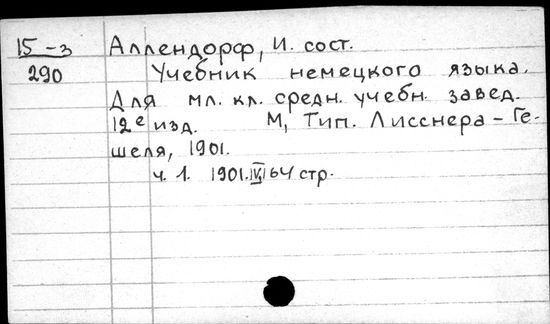 15-з Аллендорф, И. сост.
290 Учебник немецкого языка.
Для мл. кл. средн. учебн. завед.
12е изд. М, Тип. Лисснера-Ге-
шеля, 1901.
ч. 1. 1901. IV, 164 стр.